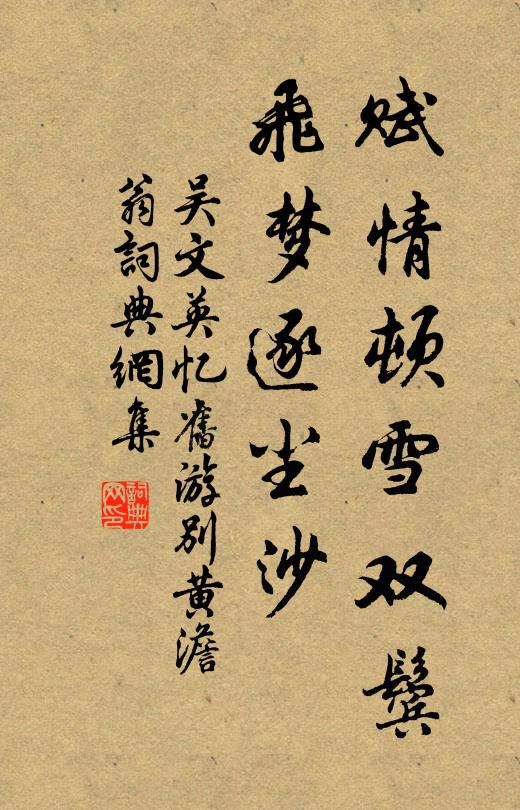 赋情顿雪双鬓
飛梦逐尘沙
吴文英忆舊游别黄澹
翁詞典網集
詞典网印